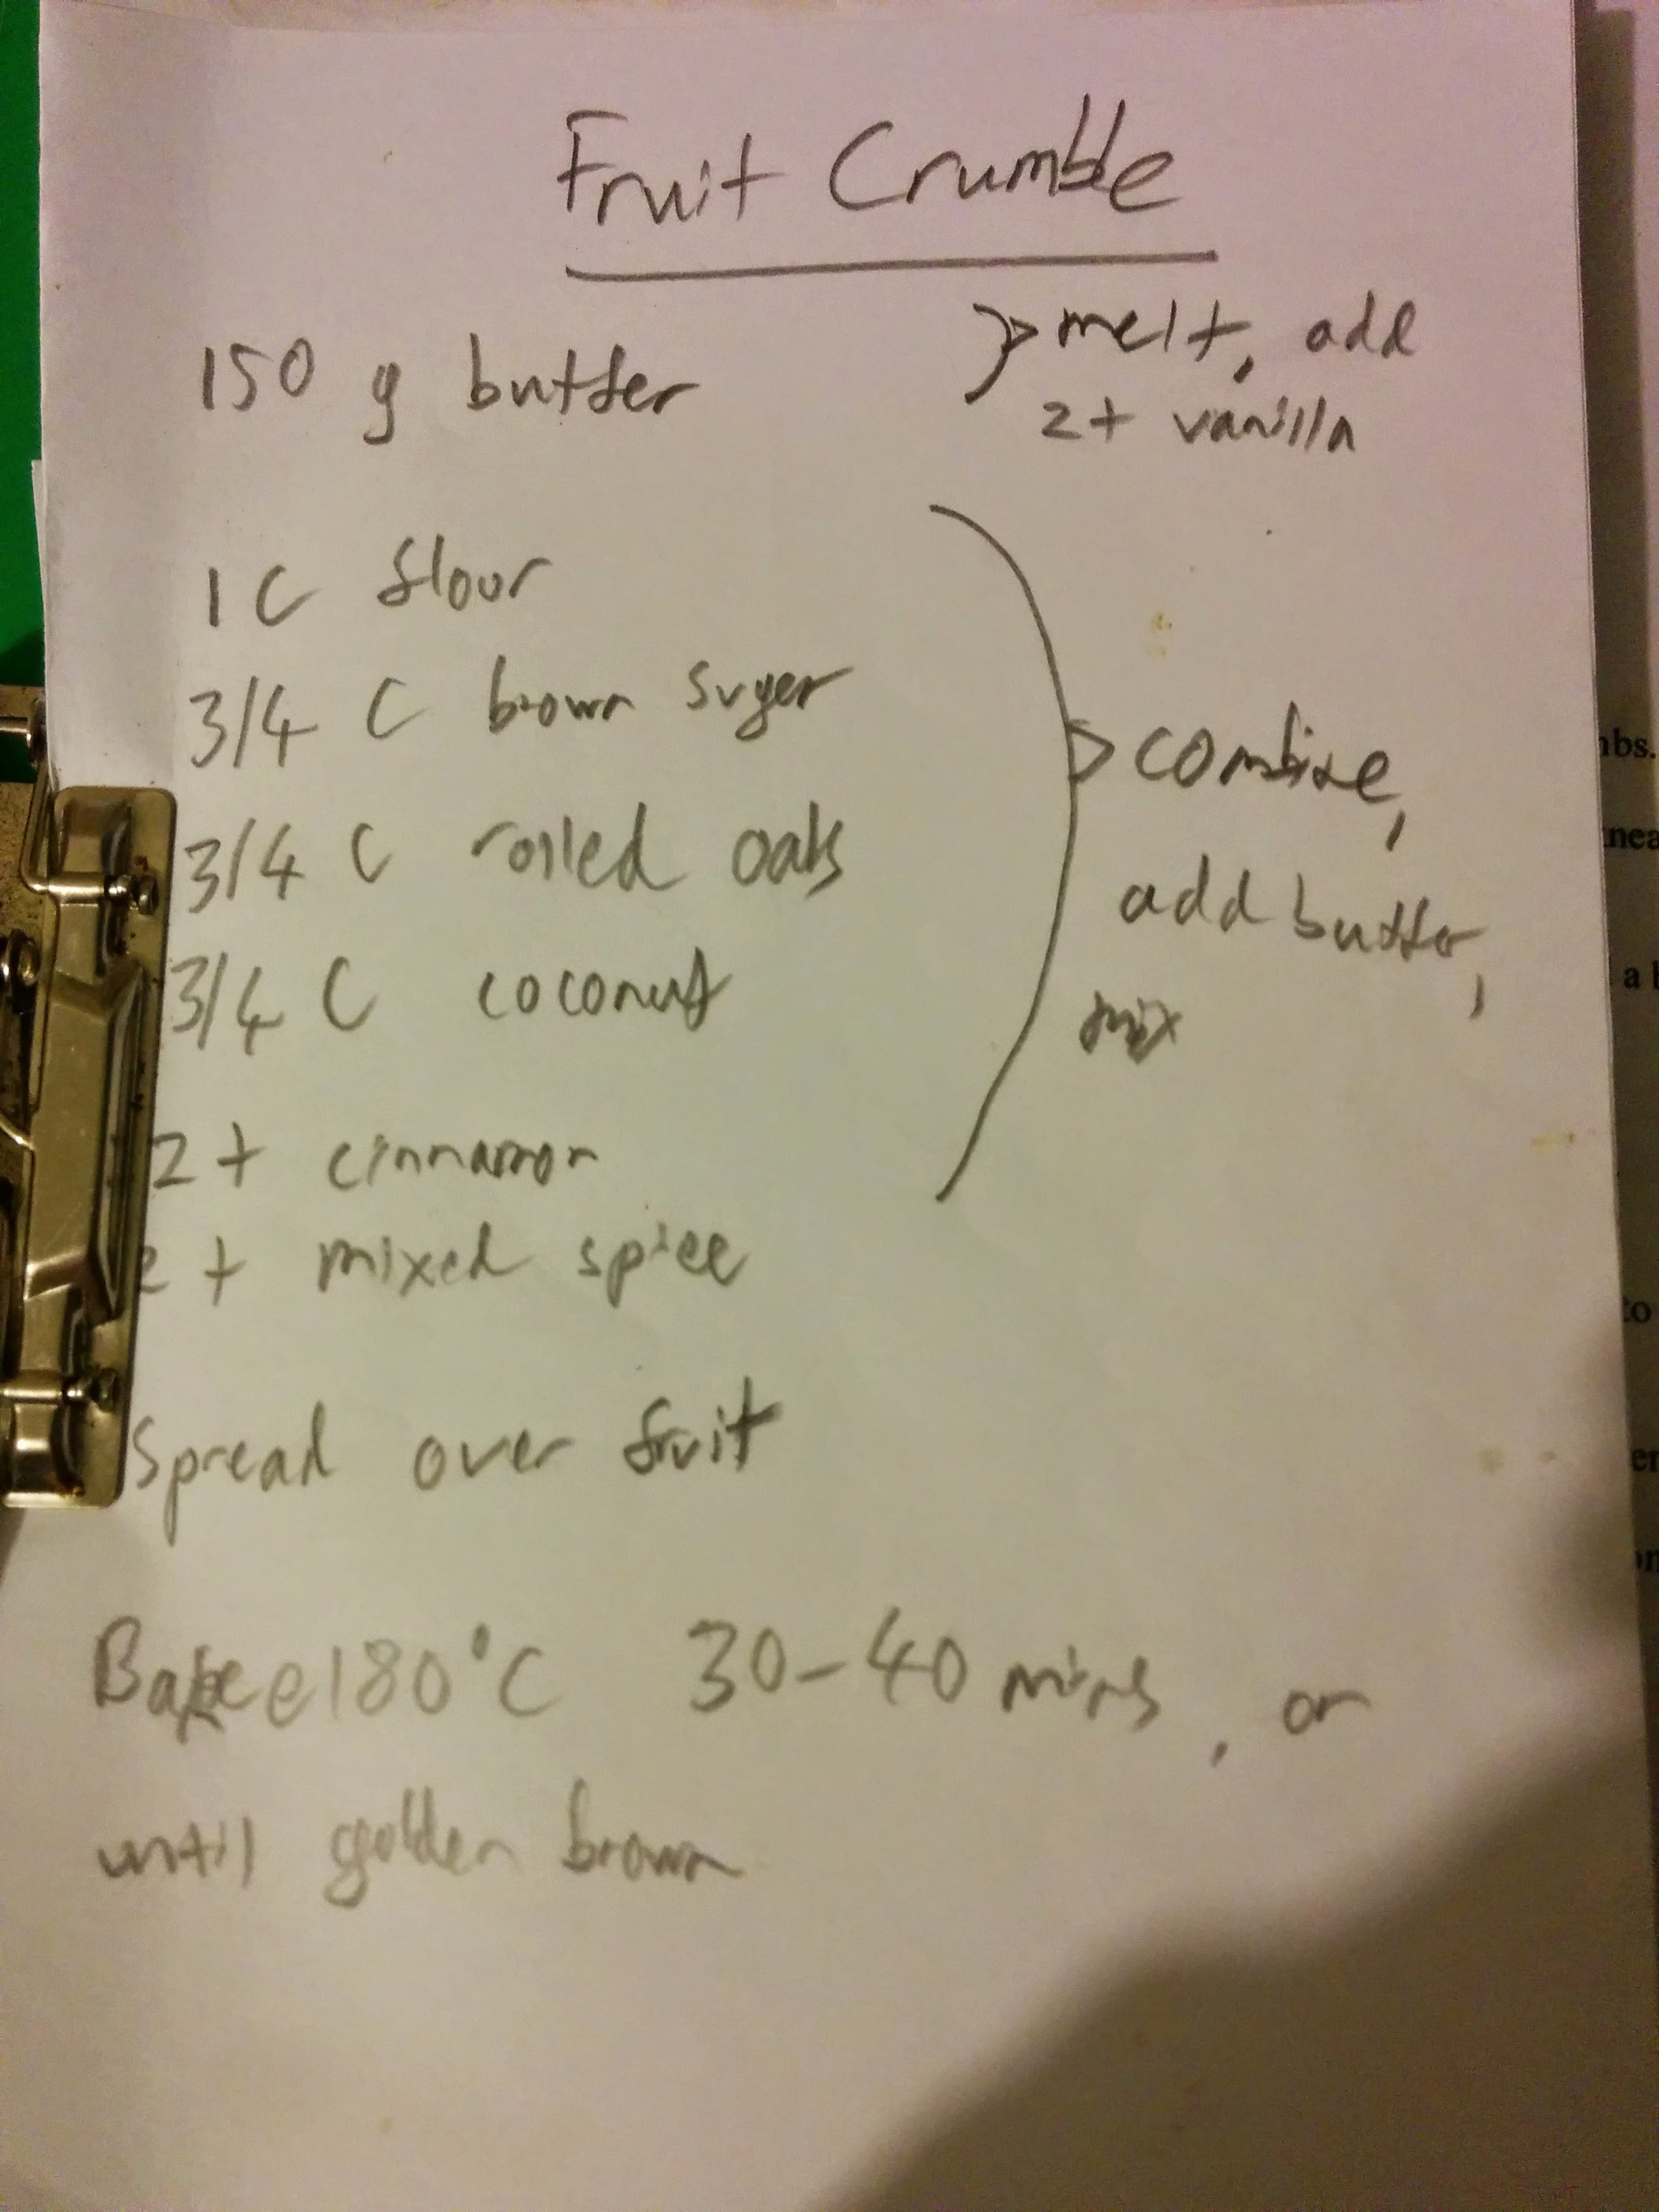 Fruit Crumble
150 g butter
melt, add
2t vanilla
1 C flour
3/4 C brown suger
3/4 C rolled oats
3/4 C coconut
2 t cinnamon
2 t mixed spice
combine,
add butter,
mix
Spread over fruit
Bake @ 180°C 30-40 mins, or
until golden brown
nbs.
nea
a b
to
er
on